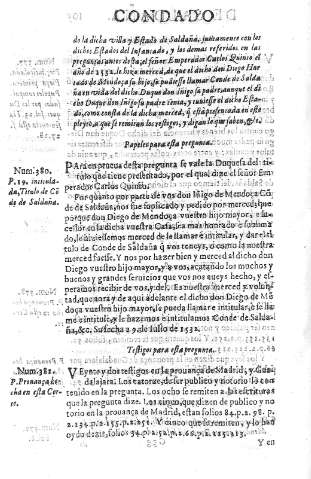 CONDADO
de la dicha villa y Estado de Saldaña, juntamente con los
dichos Estados del Infantado, y los demas referidos en las
preguntas antes desta, el señor Emperador Carlos Quinto el
año de 1532. le hizo merced, de que el dicho don Diego Hur
tado de Mendoça su hijo se pudiesse llamar Conde de Salda
ña en vida del dicho Duque don Iñigo su padre, aunque el di
cho Duque don Iñigo su padre tenia, y tuviesse el dicho Esta
do, como consta de la dicha merced, que está presentada en este
pleyto, a que se remiten los testigos, y digan lo que saben, &c.
Papeles para esta pregunta.
Num. 380.
P. 19. intitula-
da, Titulo de Cõ
de de Saldaña.
PAra en prueua desta pregunta se vale la Duquesa del ti-
tulo que tiene presentado, por el qual dize el señor Em-
perador Carlos Quinto.
Por quanto por parte de vos don Iñigo de Mendoça Cõ-
de de Saldaña, nos fue suplicado y pedido por merced, que
porque don Diego de Mendoça vuestro hijo mayor, e su-
cessor en la dicha vuestra Casa, sea mas honrado e sublima-
do, le hiziessemos merced de le llamar e intitular, y dar el ti-
tulo de Conde de Saldaña q̃ vos teneys, o como la nuestra
merced fuesse. Y nos por hazer bien y merced al dicho don
Diego vuestro hijo mayor, y a vos, acatando los muchos y
buenos y grandes seruicios que vos nos aueys hecho, y es-
peramos recibir de vos, y del. Es nuestra merced y volun-
tad, que aora y de aqui adelante el dicho don Diego de Mẽ
doça vuestro hijo mayor, se pueda llamar e intitular, e se lla-
me e intitule, y le hazemos e intitulamos Conde de Salda-
ña, &c. Su fecha a 29. de Iulio de 1532.
Testigos para esta pregunta.
Num. 381.
P. Prouança he-
cha en esta Cor-
te.
VEynte y dos testigos en la prouança de Madrid, y Gua-
dalajara: Los catorze, de ser publico y notorio lo con-
tenido en la pregunta. Los ocho se remiten a las escrituras
que la pregunta dize. Los que dizen de publico y no
torio en la prouança de Madrid, estan folios 84. p. 2. 98. p.
2. 134. p. 2. 155. p. 2. Y cinco que se remiten, y lo han
oydo dezir, folios
Y en